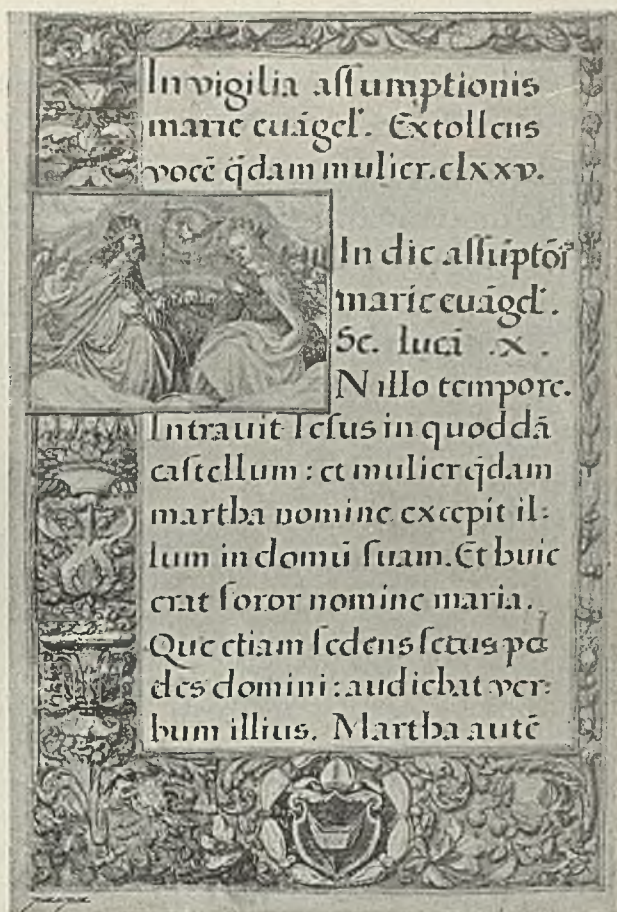 In vigilia aſſumptionis
marie euāgel'. Extollens
vocē q̄dam mulier. clxxv.
In die aſſūptōis
marie euāgel'.
Sc. lucā .x.
N illo tempore.
Intrauit Ieſus in quoddā
caſtellum : et mulier q̄dam
martha nomine excepit il:
lum in domū ſuam. Et huic
erat ſoror nomine maria.
Que etiam ſedens ſecus pe
des domini : audiebat ver:
bum illius. Martha autē